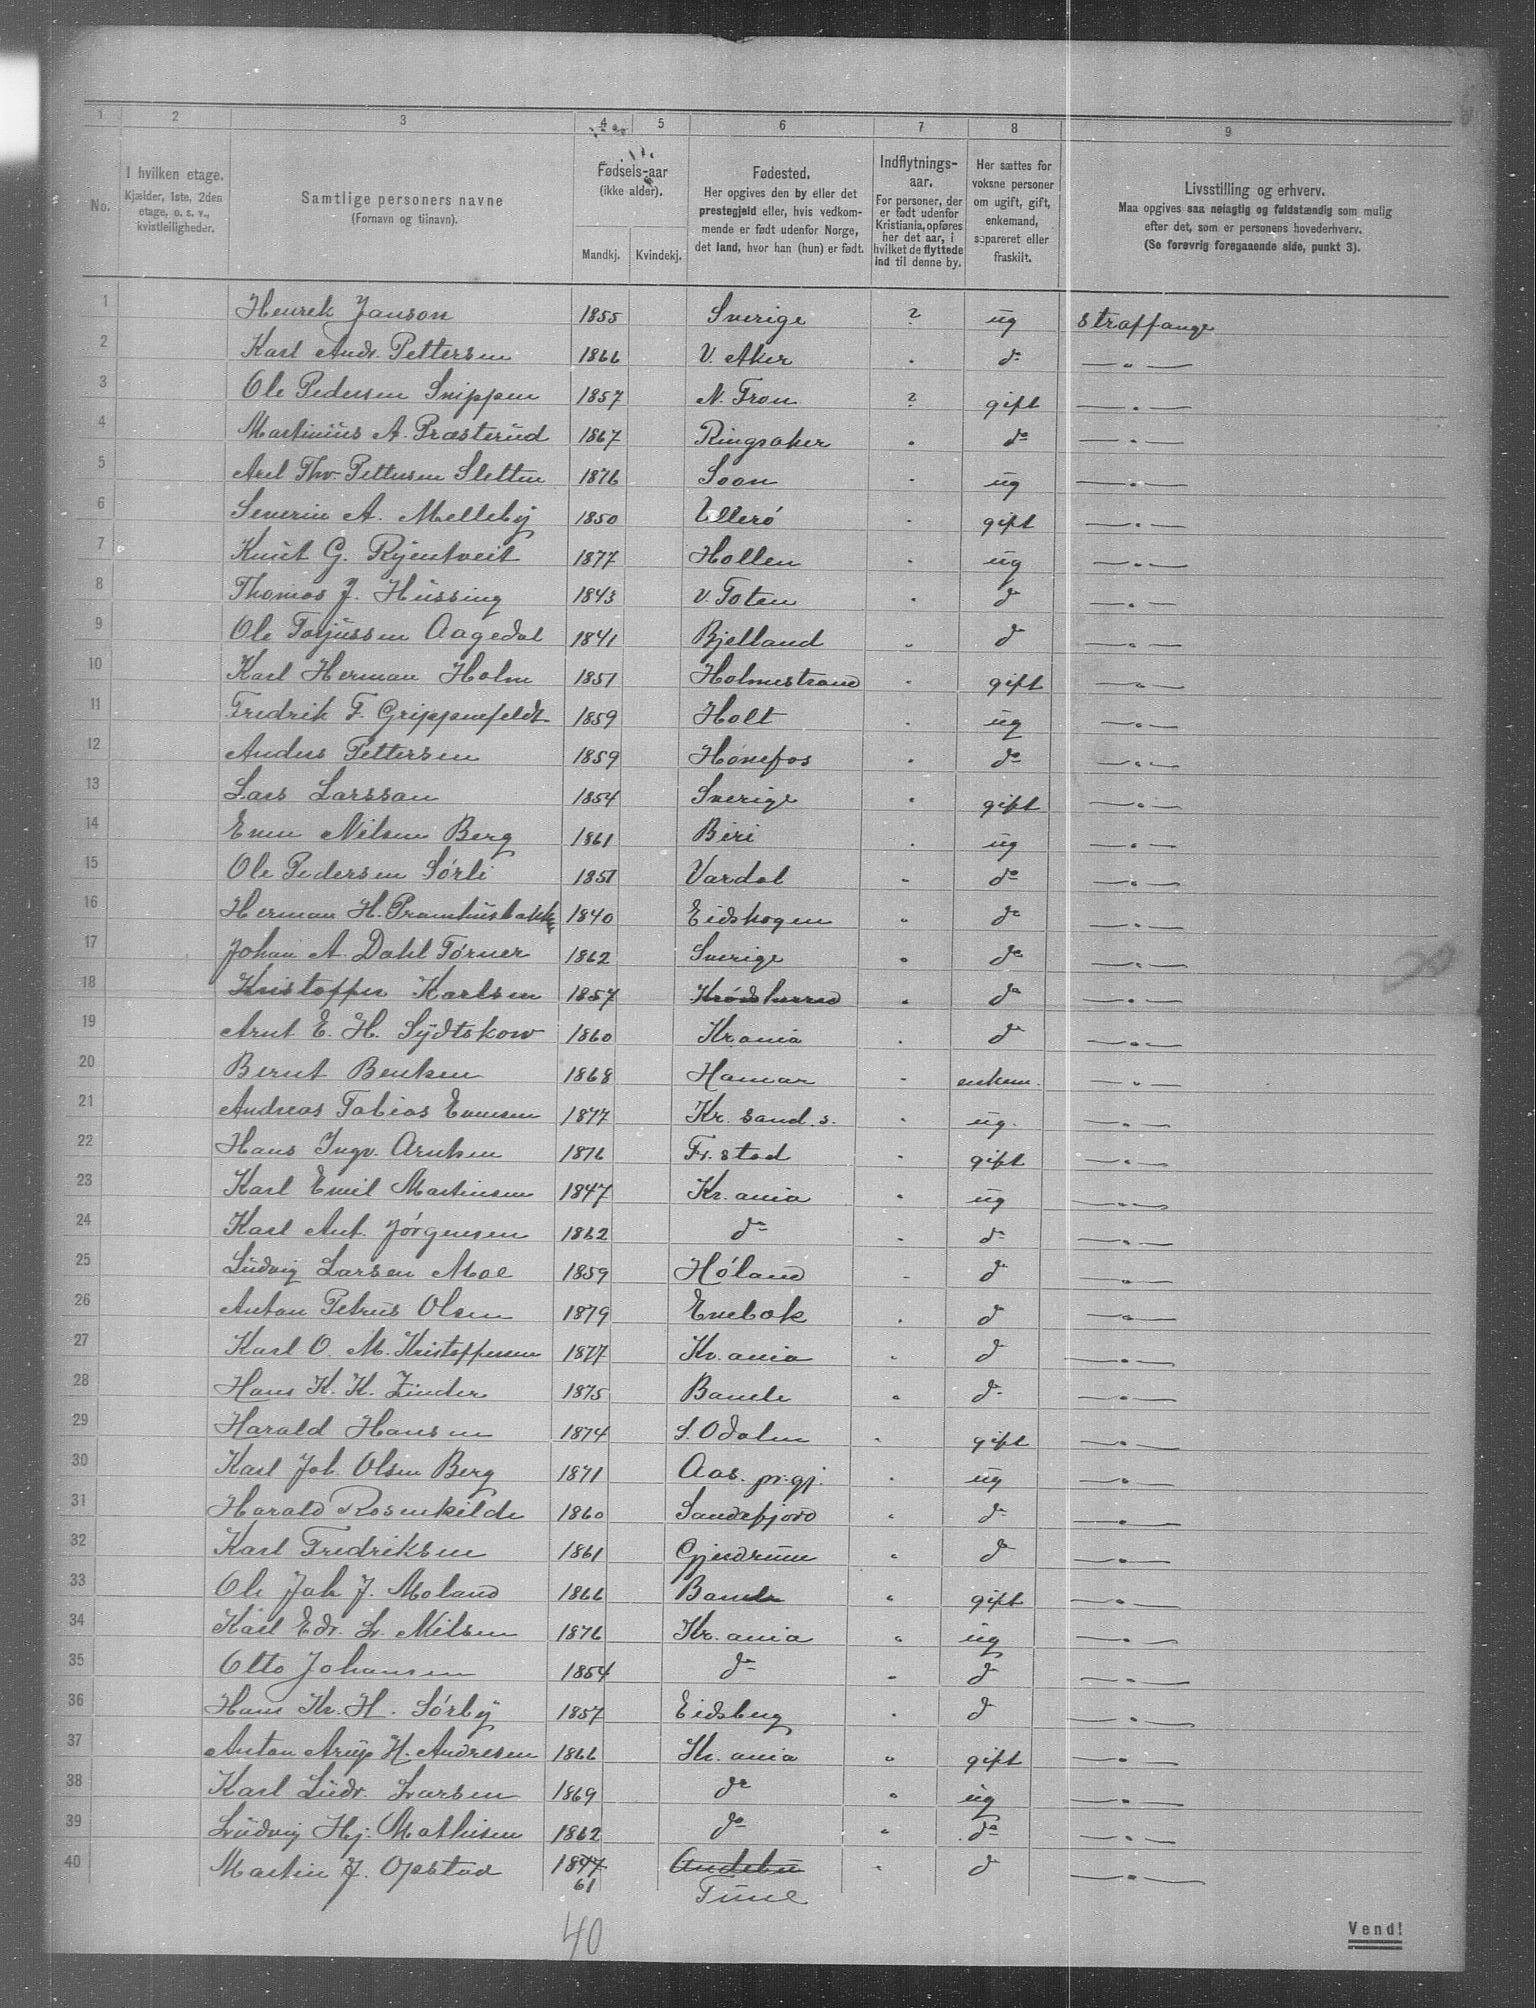 1 2 3 4 5 6 7 8 9
No.
I hvilken etage.
Kjælder, 1ste, 2den
etage, o. s. v.,
kvistleiligheder.
Samtlige personers navne
(Fornavn og tilnavn).
Fødsels-aar
(ikke alder).
Mandkj. Kvindekj.
Fødested.
Her opgives den by eller det
prestegjeld eller, hvis vedkom-
mende er født udenfor Norge,
det land, hvor han (hun) er født.
Indflytnings-
aar.
For personer, der
er født udenfor
Kristiania, opføres
her det aar, i
hvilket de flyttede
ind til denne by.
Her sættes for
voksne personer
om ugift, gift,
enkemand,
separeret eller
fraskilt.
Livsstilling og erhverv.
Maa opgives saa nøiagtig og fuldstændig som mulig
efter det, som er personens hovederhverv.
(Se forøvrig foregaaende side, punkt 3).
1 Henrek Janson 1855 Sverige ? ug straffange
2 Karl Andr. Pettersen 1866 V. Aker " do —"—
3 Ole Pedersen Snippen 1857 N. Fron ? gift —"—
4 Martinius A. Præsterud 1867 Ringsaker " do —"—
5 Axel Thv. Pettersen Sletten 1876 Soon " ug —"—
6 Severin A. Melleby 1850 Ullerø " gift —"—
7 Knut G. Rjentveit 1877 Hollen " ug —"—
8 Thomas J. Hussing 1843 V. Toten " d —"—
9 Ole Torjussen Aagedal 1841 Bjelland " d —"—
10 Karl Herman Holm 1851 Holmestrand " gift —"—
11 Fredrik F. Grippenfeldt 1859 Holt " ug —"—
12 Anders Pettersen 1859 Hønefos " do —"—
13 Lars Larsson 1854 Sverige " gift —"—
14 Even Nilsen Berg 1861 Biri " ug —"—
15 Ole Pedersen Sørli 1851 Vardal " do —"—
16 Herman H. Pramhusbakke 1840 Eidskogen " do —"—
17 Johan A. Dahl Törner 1862 Sverige " do —"—
18 Kristoffer Karlsen 1857 Krødsherred " do —"—
19 Arnt E. H. Sydtskow 1860 Kr.ania " d —"—
20 Bernt Bentsen 1868 Hamar " enkem. —"—
21 Andreas Tobias Evensen 1877 Kr. sand. s. " ug. —"—
22 Hans Ingv. Arntsen 1876 Fr. stad " gift —"—
23 Karl Emil Martinsen 1847 Kr. ania " ug —"—
24 Karl Ant. Jørgensen 1862 do " d —"—
25 Ludvig Larsen Moe 1859 Høland " d —"—
26 Anton Petrus Olsen 1879 Enebak " d —"—
27 Karl O. M. Kristoffersen 1877 Kr. ania " d —"—
28 Hans K. K. Zinder 1875 Bamle " d —"—
29 Harald Hansen 1874 S. Odalen " gift —"—
30 Karl Joh. Olsen Berg 1871 Aas. pr.gj. " ug —"—
31 Harald Rosenkilde 1860 Sandefjord " d —"—
32 Karl Fredriksen 1861 Gjerdrum " d —"—
33 Ole Joh J. Moland 1866 Bamle " gift —"—
34 Karl Edv. L. Nilsen 1876 Kr. ania " ug —"—
35 Otto Johansen 1854 do " d —"—
36 Hans Kr. H. Sørby 1857 Eidsberg " d —"—
37 Anton Arup H. Andresen 1866 Kr. ania " gift —"—
38 Karl Ludv. Larsen 1869 do " ug —"—
39 Ludvig Hj. Mathisen 1862 do " do —"—
40 Martin J. Opstad 1847 Andebu " d —"—
61 Tune
40
Vend!